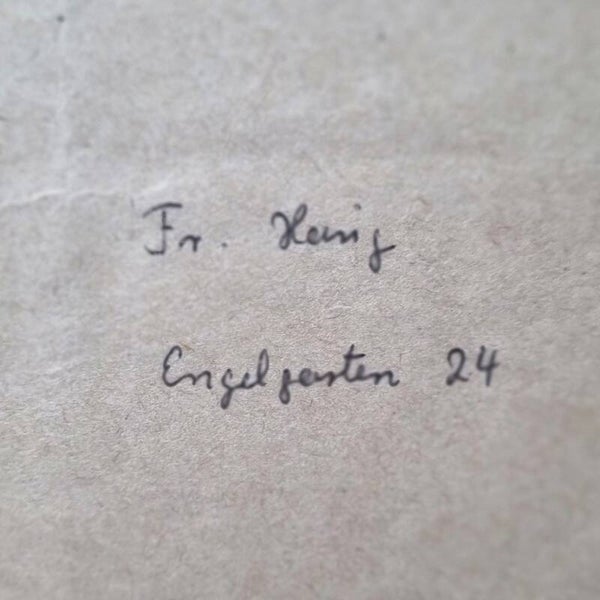 Fr. Hanig
Engelgarten 24